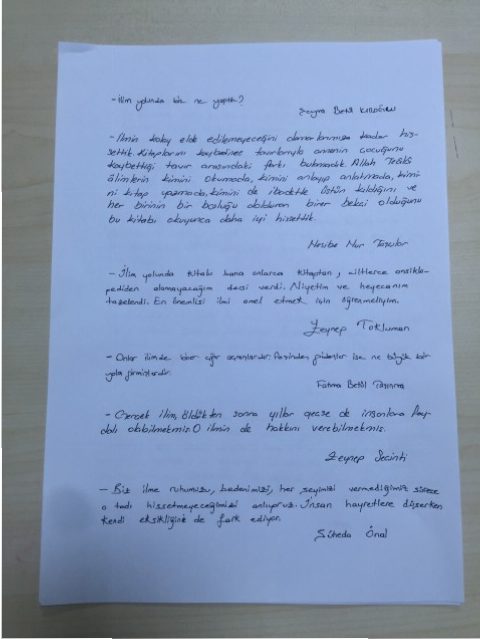 - İlim yolunda biz ne yaptık?
Şeyma Betül
- İlmin kolay elde edilemeyeceğini damarlarımıza kadar his-
settik. Kitaplarını kaybedince tavırlarıyla annenin çocuğunu
kaybettiği tavır arasındaki farkı bulmadık. Allah Teâlâ
âlimlerin kimini okumada, kimini anlayıp anlatmada, kimi-
ni kitap yazmada, kimini de ibadette üstün kıldığını ve
her birinin bir boşluğu dolduran birer bekçi olduğunu
bu kitabı okuyunca daha iyi hissettik.
Nesibe Nur
- İlim yolunda kitabı bana onlarca kitaptan, ciltlerce ansiklo-
pediden alamayacağım dersi verdi. Niyetim ve heyecanım
tazelendi. En önemlisi ilmi amel etmek için öğrenmeliyim.
Zeynep Tokluman
- Onlar ilimde birer çığır açanlardır. Peşinden gidenler ise ne büyük bir
yola girmişlerdir.
Fatma Betül
- Gerçek ilim, öldükten sonra yıllar geçse de insanlara fay-
dalı olabilmekmiş. O ilmin de hakkını verebilmekmiş.
Zeynep Seçinti
- Biz ilme ruhumuzu, bedenimizi, her şeyimizi vermediğimiz sürece
o tadı hissetmeyeceğimizi anlıyoruz. İnsan hayretlere düşerken
kendi eksikliğini de fark ediyor.
Süheda Önal